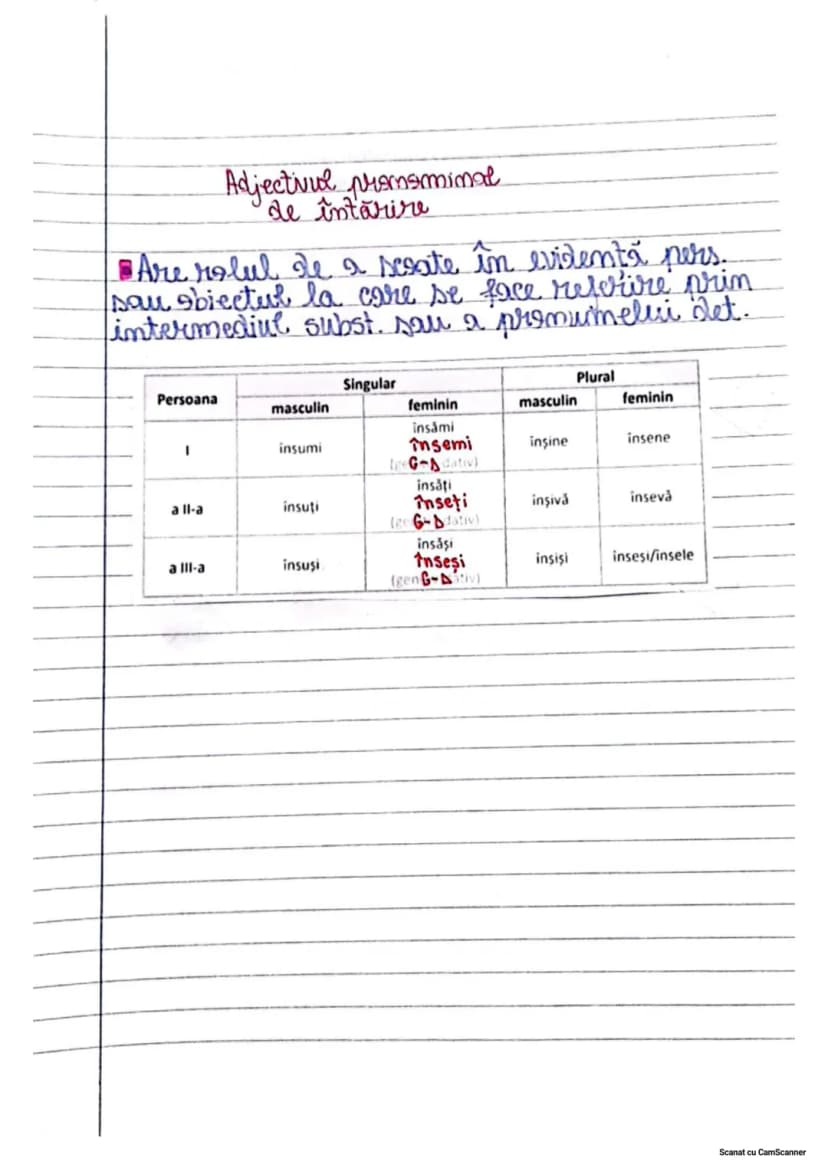 Adjectivul pronominal
de întărire
Are rolul de a scoate în evidență pers.
sau obiectul la care se face referire prin
intermediul subst. sau a pronumelui det.
Persoana Singular Plural
masculin feminin masculin feminin
I însumi însămi însemi G-D înșine însene
a II-a însuți însăți înseți G-D înșivă însevă
a III-a însuși însăși înseși G-D înșiși înseși/însele
Scanat cu CamScanner